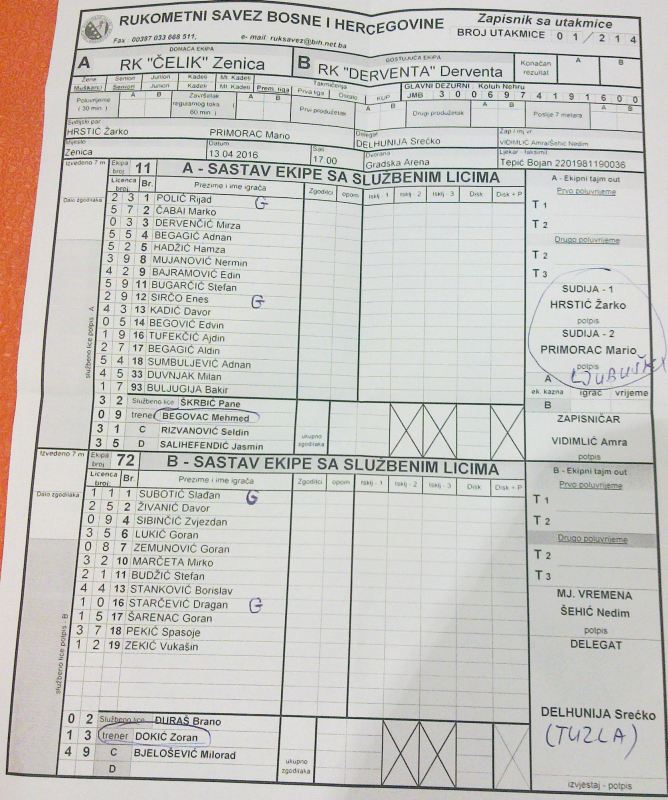 RUKOMETNI SAVEZ BOSNE I HERCEGOVINE
Zapisnik sa utakmice
Fax 00387 033 668 511; e- mail ruksavez@bih.net.ba
BROJ UTAKMICE 0 1 / 2 1 4
DOMAĆA EKIPA
GOSTUJUĆA EKIPA
A RK "ČELIK" Zenica
B RK "DERVENTA" Derventa
Konačan rezultat A B
Žene Seniori Juniori Kadeti Ml. Kadeti
Muškarci Seniori Juniori Kadeti Ml. Kadeti Prem. liga Prva liga Ostalo KUP
Takmičenja
GLAVNI DEŽURNI Koluh Nehru
JMB 3 0 0 6 9 7 4 1 9 1 6 0 0
Poluvrijeme ( 30 min. ) A B
Završetak regularnog toka 60 min. ) A B
Prvi produžetak A B
Drugi produžetak A B
Poslije 7 metara A B
Sudijski par
HRSTIĆ Žarko PRIMORAC Mario
Delegat
DELHUNIJA Srećko
Zap / mj vr
VIDIMLIĆ Amra/Šehić Nedim
Mjesto
Zenica
Datum
13 04 2016
Sati
17 00
Dvorana
Gradska Arena
Ljekar
Tepić Bojan 2201981190036
Izvedeno 7 m
Ekipa broj 11 A - SASTAV EKIPE SA SLUŽBENIM LICIMA
A - Ekipni tajm out
Licenca broj: Br. Prezime i ime igrača Zgoditci opom Isklj - 1 Isklj - 2 Isklj - 3 Disk Disk + P
Prvo poluvrijeme
Dalo zgoditaka
2 3 1 POLIĆ Rijad G
5 7 2 ČABAJ Marko
0 3 3 DERVENČIĆ Mirza
5 5 4 BEGAGIĆ Adnan
5 2 5 HADŽIĆ Hamza
3 9 8 MUJANOVIĆ Nermin
4 2 9 BAJRAMOVIĆ Edin
5 9 11 BUGARČIĆ Stefan
2 9 12 SIRĆO Enes G
4 3 13 KADIĆ Davor
0 5 14 BEGOVIĆ Edvin
1 9 16 TUFEKČIĆ Ajdin
2 7 17 BEGAGIĆ Aldin
5 4 18 SUMBULJEVIĆ Adnan
4 5 33 DUVNJAK Milan
1 7 93 BULJUGIJA Bakir
3 2 Službeno lice ŠKRBIĆ Pane
0 9 trener BEGOVAC Mehmed
3 1 C RIZVANOVIĆ Seldin
3 5 D SALIHEFENDIĆ Jasmin
ukupno zgoditaka
službeno lice potpis A
T 1
T 2
Drugo poluvrijeme
T 2
T 3
SUDIJA - 1
HRSTIĆ Žarko
potpis
SUDIJA - 2
PRIMORAC Mario
potpis
LJUBUŠKI
A
ek. kazna igrač vrijeme
B
ZAPISNIČAR
VIDIMLIĆ Amra
potpis
Izvedeno 7 m
Ekipa broj: 72 B - SASTAV EKIPE SA SLUŽBENIM LICIMA
B - Ekipni tajm out
Licenca broj: Br. Prezime i ime igrača Zgoditci opom Isklj - 1 Isklj - 2 Isklj - 3 Disk Disk + P
Prvo poluvrijeme
Dalo zgoditaka
1 1 1 SUBOTIĆ Slađan G
2 5 2 ŽIVANIĆ Davor
0 9 4 SIBINČIĆ Zvjezdan
3 5 6 LUKIĆ Goran
0 8 7 ZEMUNOVIĆ Goran
3 2 10 MARČETA Mirko
2 1 11 BUDŽIĆ Stefan
4 4 13 STANKOVIĆ Borislav
1 0 16 STARČEVIĆ Dragan G
1 5 17 ŠARENAC Goran
3 7 18 PEKIĆ Spasoje
1 2 19 ZEKIĆ Vukašin
0 2 Službeno lice ĐURAŠ Brano
1 3 trener DOKIĆ Zoran
4 9 C BJELOŠEVIĆ Milorad
D
ukupno zgoditaka
službeno lice potpis B
T 1
T 2
Drugo poluvrijeme
T 2
T 3
MJ. VREMENA
ŠEHIĆ Nedim
potpis
DELEGAT
DELHUNIJA Srećko
(TUZLA)
izvještaj - potpis